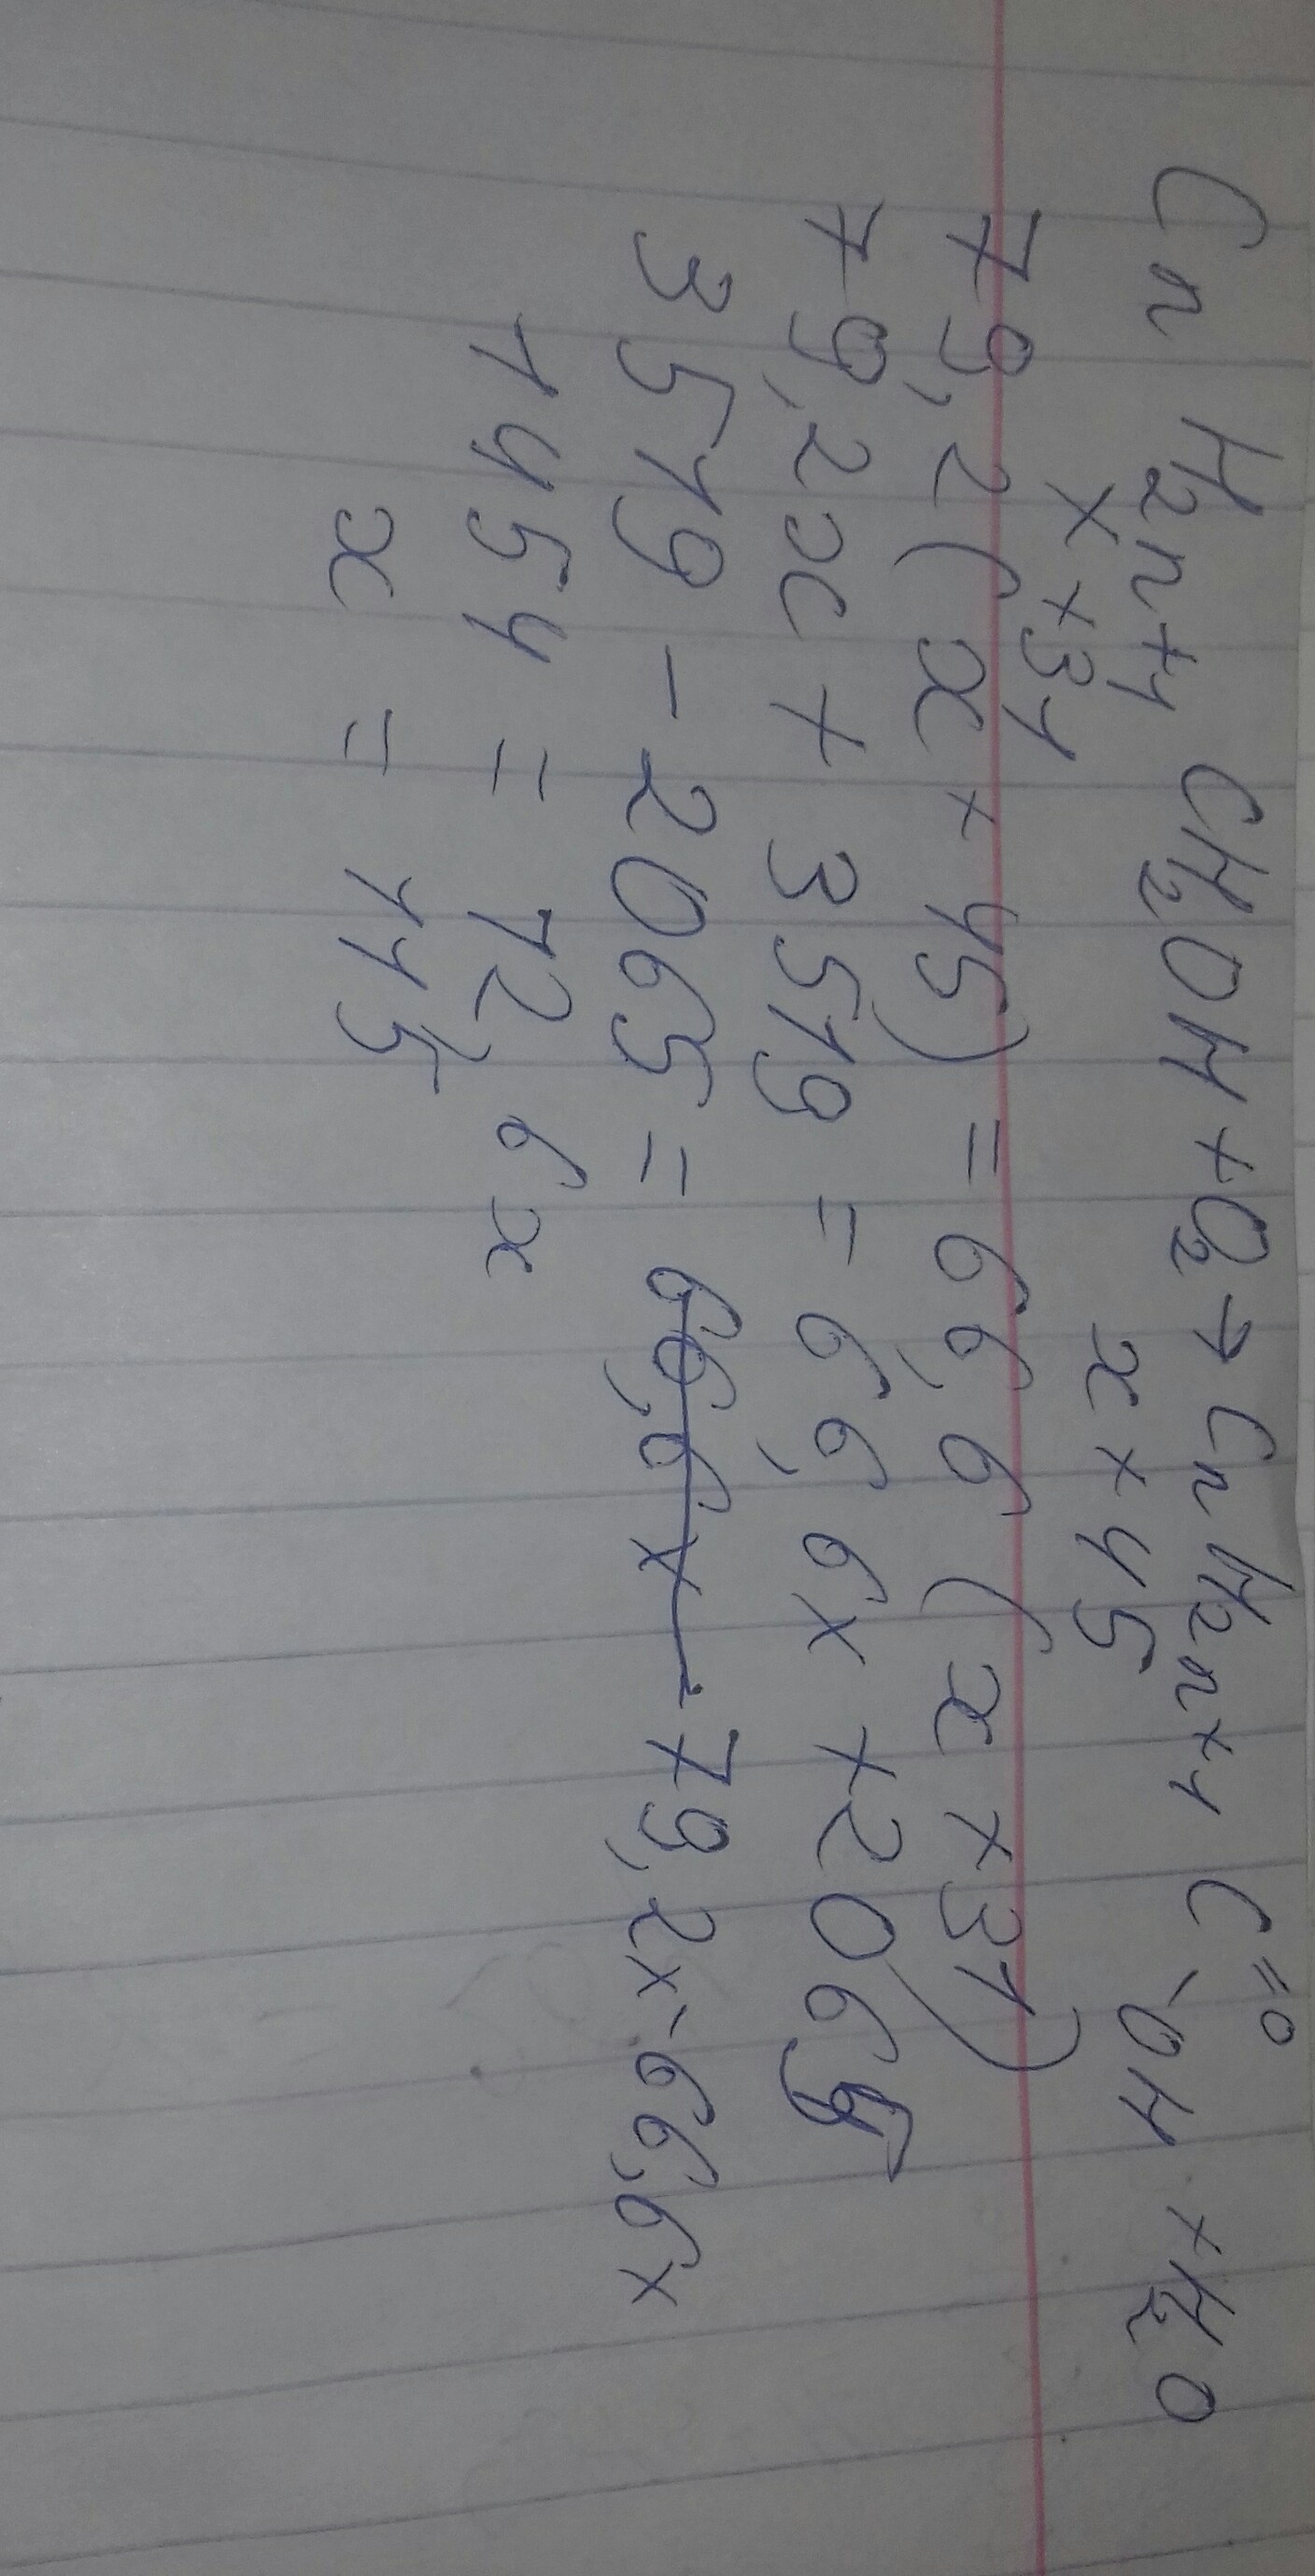 Cn H2n+1 CH2OH + O2 → Cn H2n+1 C=O-OH + H2O
x+31 x+45
79,2(x+45) = 66,6(x+31)
79,2x + 3519 = 66,6x + 2065
3519 - 2065 = 79,2x - 66,6x
1454 = 12,6x
x = 115